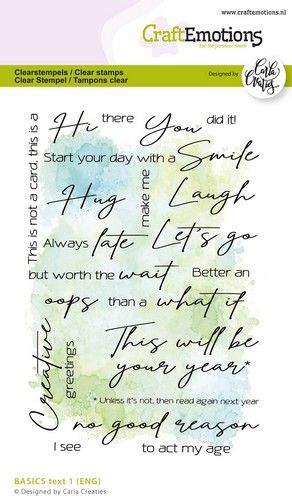 www.craftemotions.nl
CraftEmotions
for the personal touch
Clearstempels / Clear stamps
Clear Stempel / Tampons clear
Designed by
Carla
Creaties
This is not a card, this is a
Hi there You did it!
Start your day with a Smile
Hug make me Laugh
Always late Let's go
but worth the wait Better an
oops than a what if
Creative greetings
This will be
your year*
* Unless it's not, then read again next year
no good reason
I see to act my age
BASICS text 1 (ENG)
© Designed by Carla Creaties